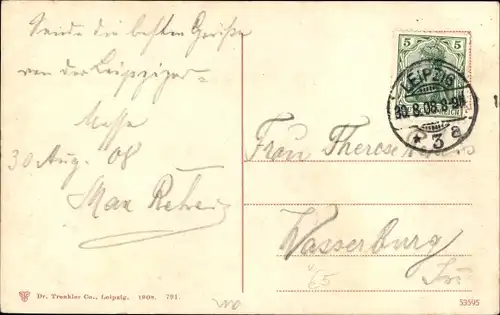 Sende die besten Grüße
von der Leipziger-
Messe
30 Aug. 08
Max
5 5
LEIPZIG
30.8.08.8-9N
* 3a
Frau Therese
Wasserburg
65
Dr. Trenkler Co., Leipzig. 1908. 791.
53595